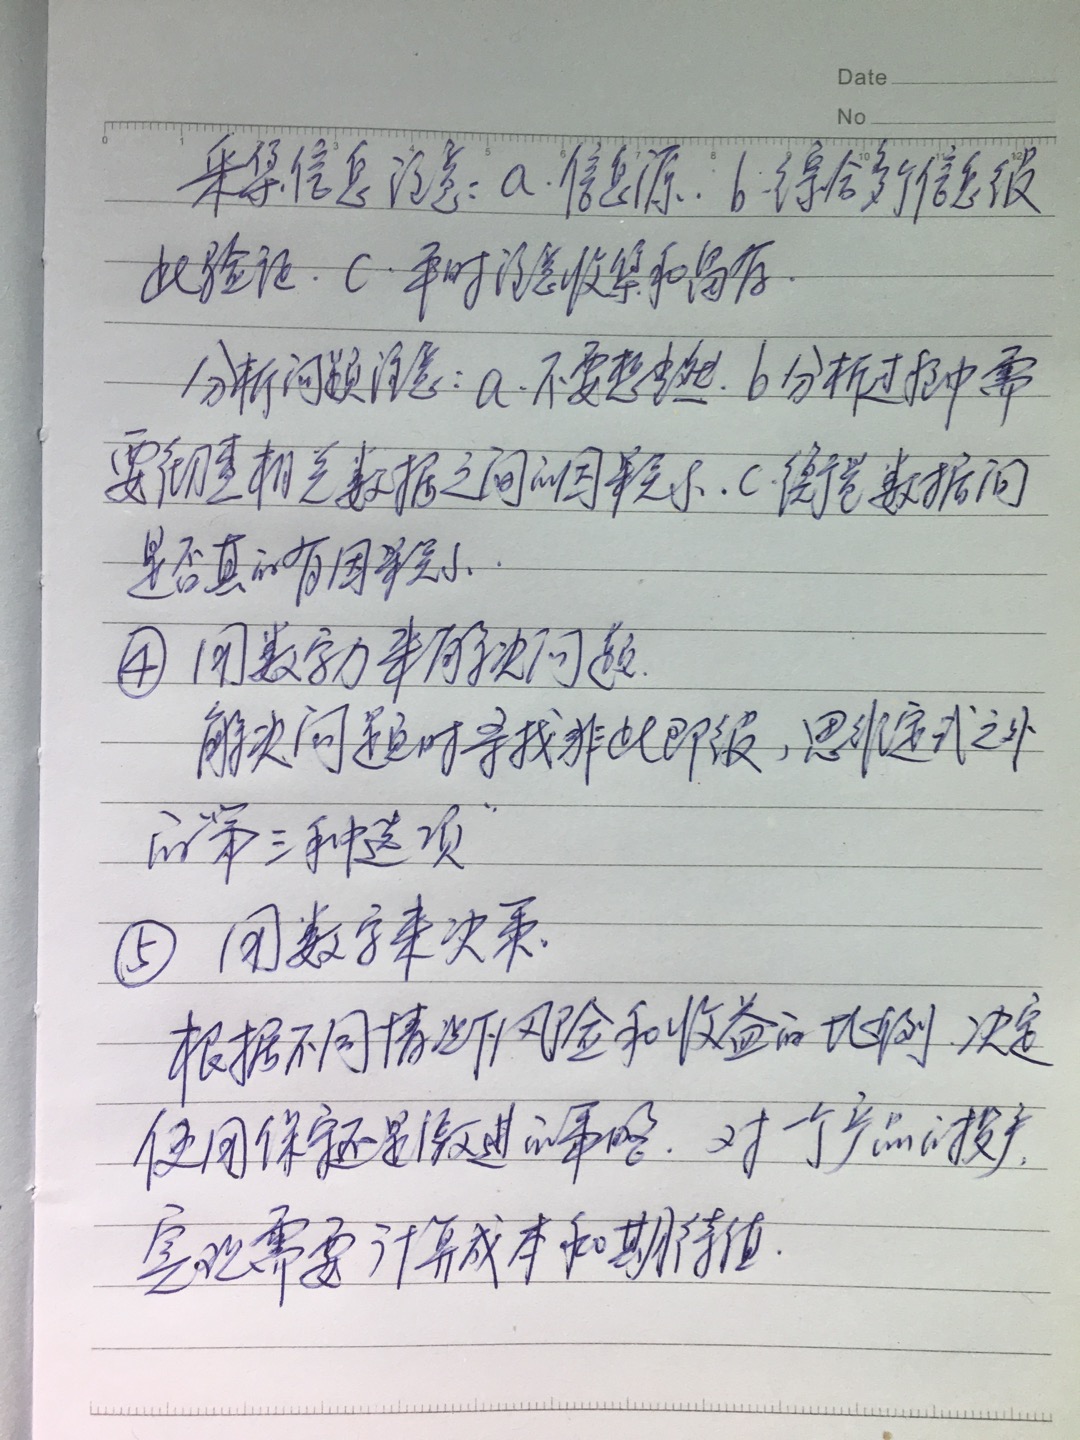 Date
No
0 1 2 3 4 5 6 7 8 9 10 11 12
采集信息注意: a.信息源. b.综合多个信息彼
此验证. C.平时注意收集和留存.
分析问题注意: a.不要想当然. b分析过程中需
要彻查相关数据之间的因果关系. C.衡量数据间
是否真的有因果关系.
④ 用数字力来解决问题.
解决问题时寻找非此即彼,思维定式之外
的“第三种选项”
⑤ 用数字来决策.
根据不同情况下风险和收益的比例.决定
使用保守还是激进的策略. 对一个产品的投产,
客观需要计算成本和期待值.